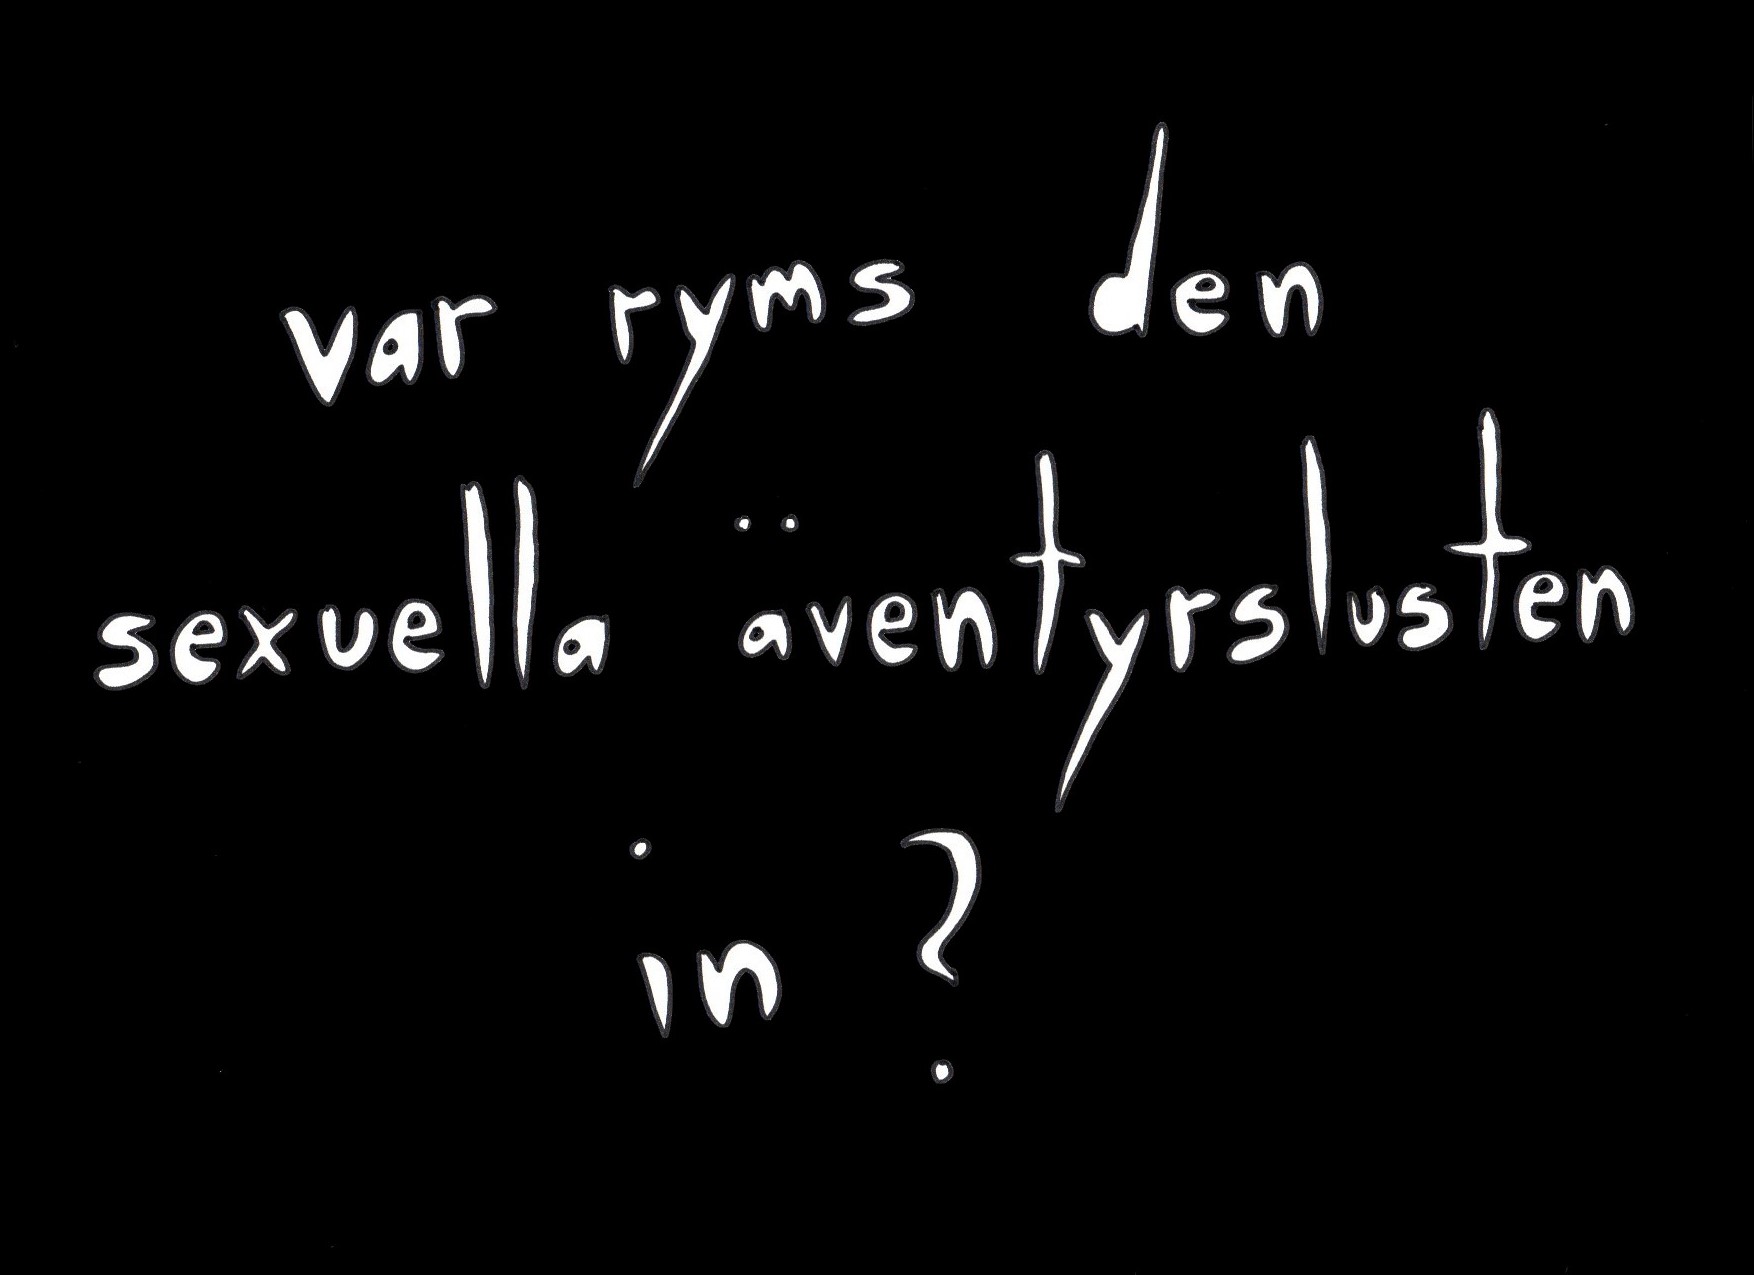 var ryms den
sexuella äventyrslusten
in ?